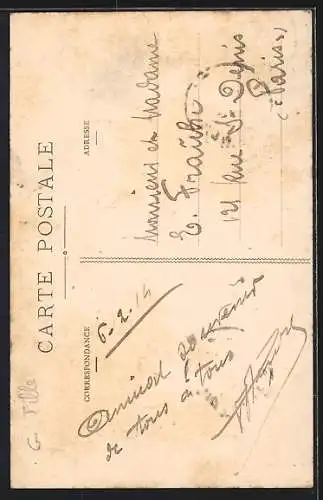 CARTE POSTALE
CORRESPONDANCE
ADRESSE
6-2.14
Amical souvenir
de tous à tous
Monsieur et Madame
E.
121 Rue St Denis
(Paris)
G. Ville